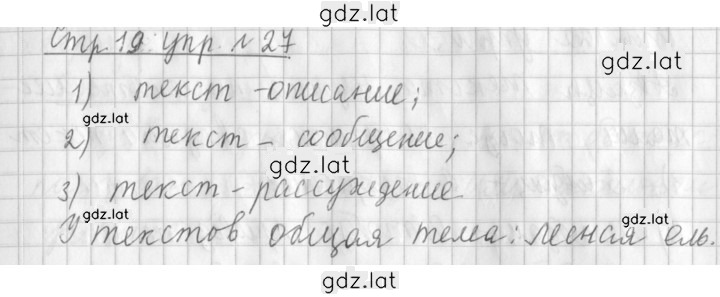 gdz.lat
Стр. 19. упр. № 27
gdz.lat
1) текст - описание;
gdz.lat
2) текст - сообщение;
gdz.lat
3) текст - рассуждение
gdz.lat
gdz.lat
У текстов общая тема: лесная ель.
gdz.lat